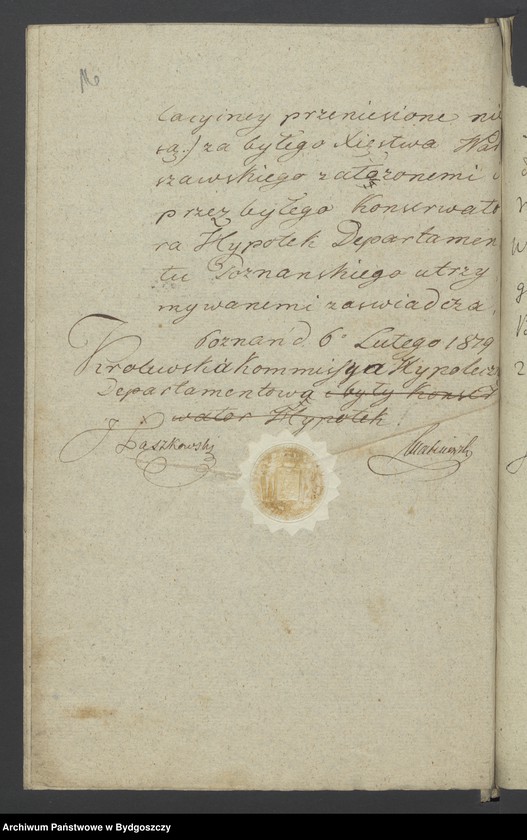 16
lacyiney przeniesione nie
są.) za byłego Xięstwa War
szawskiego założonemi i
przez byłego Konserwato
ra Hypotek Departamen
tu Poznanskiego utrzy
mywanemi zaswiadcza.
Poznań d. 6º Lutego 1819
Krolewska Kommissya Hypotecz
Departamentowa i były Konser
wator Hypotek
J. Paszkowski
Archiwum Państwowe w Bydgoszczy